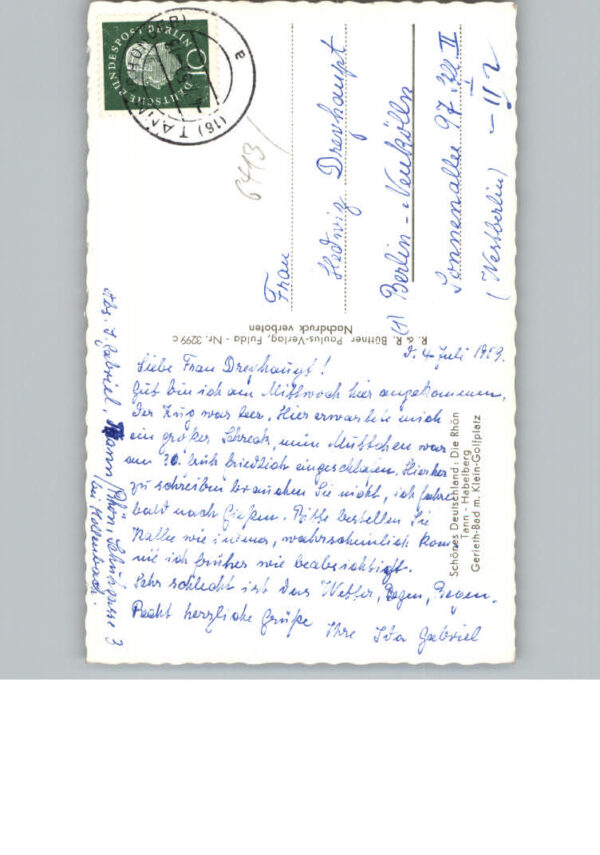 DEUTSCHE BUNDESPOST BERLIN
10
(16) TANN
a
6413
Frau
Hedwig Dreyhaupt
(1) Berlin-Neukölln
Sonnenallee 97 II
(Westberlin)
R. & R. Büttner Paulus-Verlag, Fulda - Nr. 3299 c
Nachdruck verboten
Schönes Deutschland: Die Rhön
Tann - Habelberg
Gerieth-Bad m. Klein-Golfplatz
D. 4 Juli 1959.
Liebe Frau Dreyhaupt!
Gut bin ich am Mittwoch hier angekommen,
der Zug war leer. Hier erwartete mich
ein großer Schreck, mein Muttchen war
am 30. früh friedlich eingeschlafen. Hierher
zu schreiben brauchen Sie nicht, ich fahre
bald nach Gießen. Bitte bestellen Sie
wie immer, wahrscheinlich kom-
me ich früher wie beabsichtigt.
Sehr schlecht ist das Wetter, Regen, Regen.
Recht herzliche Grüße
Ihre Ida Gabriel
Abs. I. Gabriel, Tann/Rhön, 3
bei